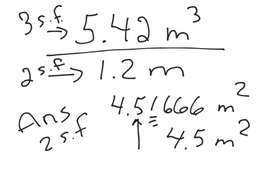 3 s.f. → 5.42 m³
2 s.f. → 1.2 m
Ans 4.51666 m²
2 s.f ↑ 4.5 m²